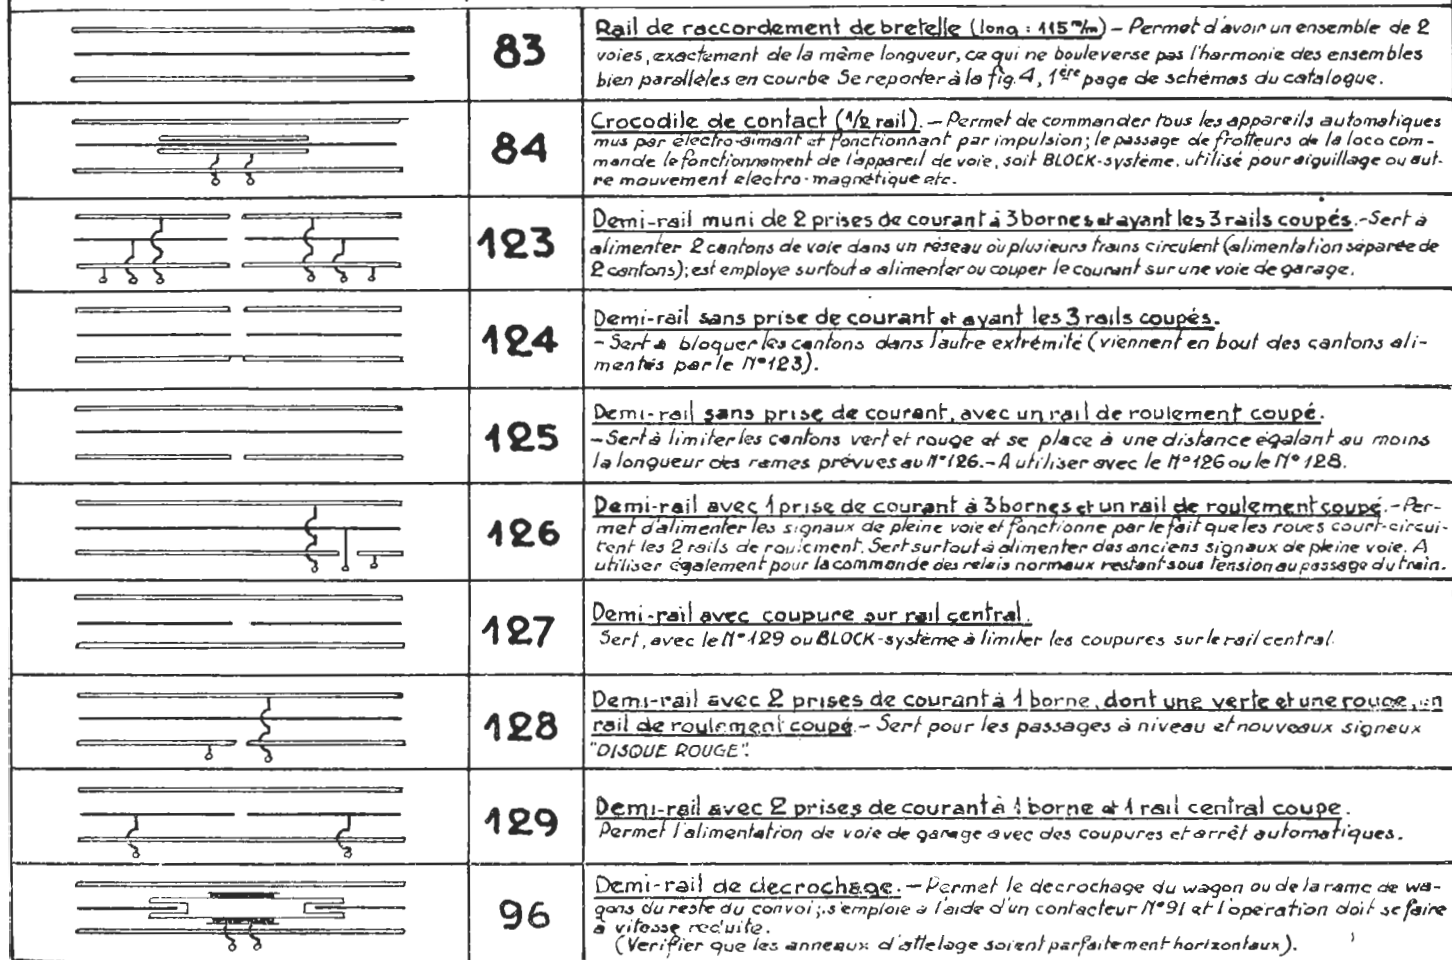 83
Rail de raccordement de bretelle (long : 115 m/m) – Permet d'avoir un ensemble de 2
voies, exactement de la même longueur, ce qui ne bouleverse pas l'harmonie des ensembles
bien parallèles en courbe Se reporter à la fig. 4, 1ère page de schémas du catalogue.
84
Crocodile de contact (1/2 rail). – Permet de commander tous les appareils automatiques
mus par électro-aimant et fonctionnant par impulsion; le passage de frotteurs de la loco com-
mande le fonctionnement de l'appareil de voie, soit BLOCK-système, utilisé pour aiguillage ou aut-
re mouvement electro-magnétique etc.
123
Demi-rail muni de 2 prises de courant à 3 bornes et ayant les 3 rails coupés. – Sert à
alimenter 2 cantons de voie dans un réseau où plusieurs trains circulent (alimentation séparée de
2 cantons); est employé surtout a alimenter ou couper le courant sur une voie de garage.
124
Demi-rail sans prise de courant et ayant les 3 rails coupés.
– Sert à bloquer les cantons dans l'autre extrémité (viennent en bout des cantons ali-
mentés par le N°123).
125
Demi-rail sans prise de courant, avec un rail de roulement coupé.
– Sert à limiter les cantons vert et rouge et se place à une distance égalant au moins
la longueur des rames prévues au N°126. – A utiliser avec le N°126 ou le N°128.
126
Demi-rail avec 1 prise de courant à 3 bornes et un rail de roulement coupé. – Per-
met d'alimenter les signaux de pleine voie et fonctionne par le fait que les roues court-circui-
tent les 2 rails de roulement. Sert surtout à alimenter des anciens signaux de pleine voie. A
utiliser également pour la commande des relais normaux restant sous tension au passage du train.
127
Demi-rail avec coupure sur rail central.
Sert, avec le N°129 ou BLOCK-système à limiter les coupures sur le rail central.
128
Demi-rail avec 2 prises de courant à 1 borne, dont une verte et une rouge, un
rail de roulement coupé – Sert pour les passages à niveau et nouveaux signaux
"DISQUE ROUGE".
129
Demi-rail avec 2 prises de courant à 1 borne et 1 rail central coupe.
Permet l'alimentation de voie de garage avec des coupures et arrêt automatiques.
96
Demi-rail de decrochage. – Permet le decrochage du wagon ou de la rame de wa-
gons du reste du convoi; s'emploie à l'aide d'un contacteur N°91 et l'opération doit se faire
à vitesse reduite.
(Verifier que les anneaux d'attelage soient parfaitement horizontaux).